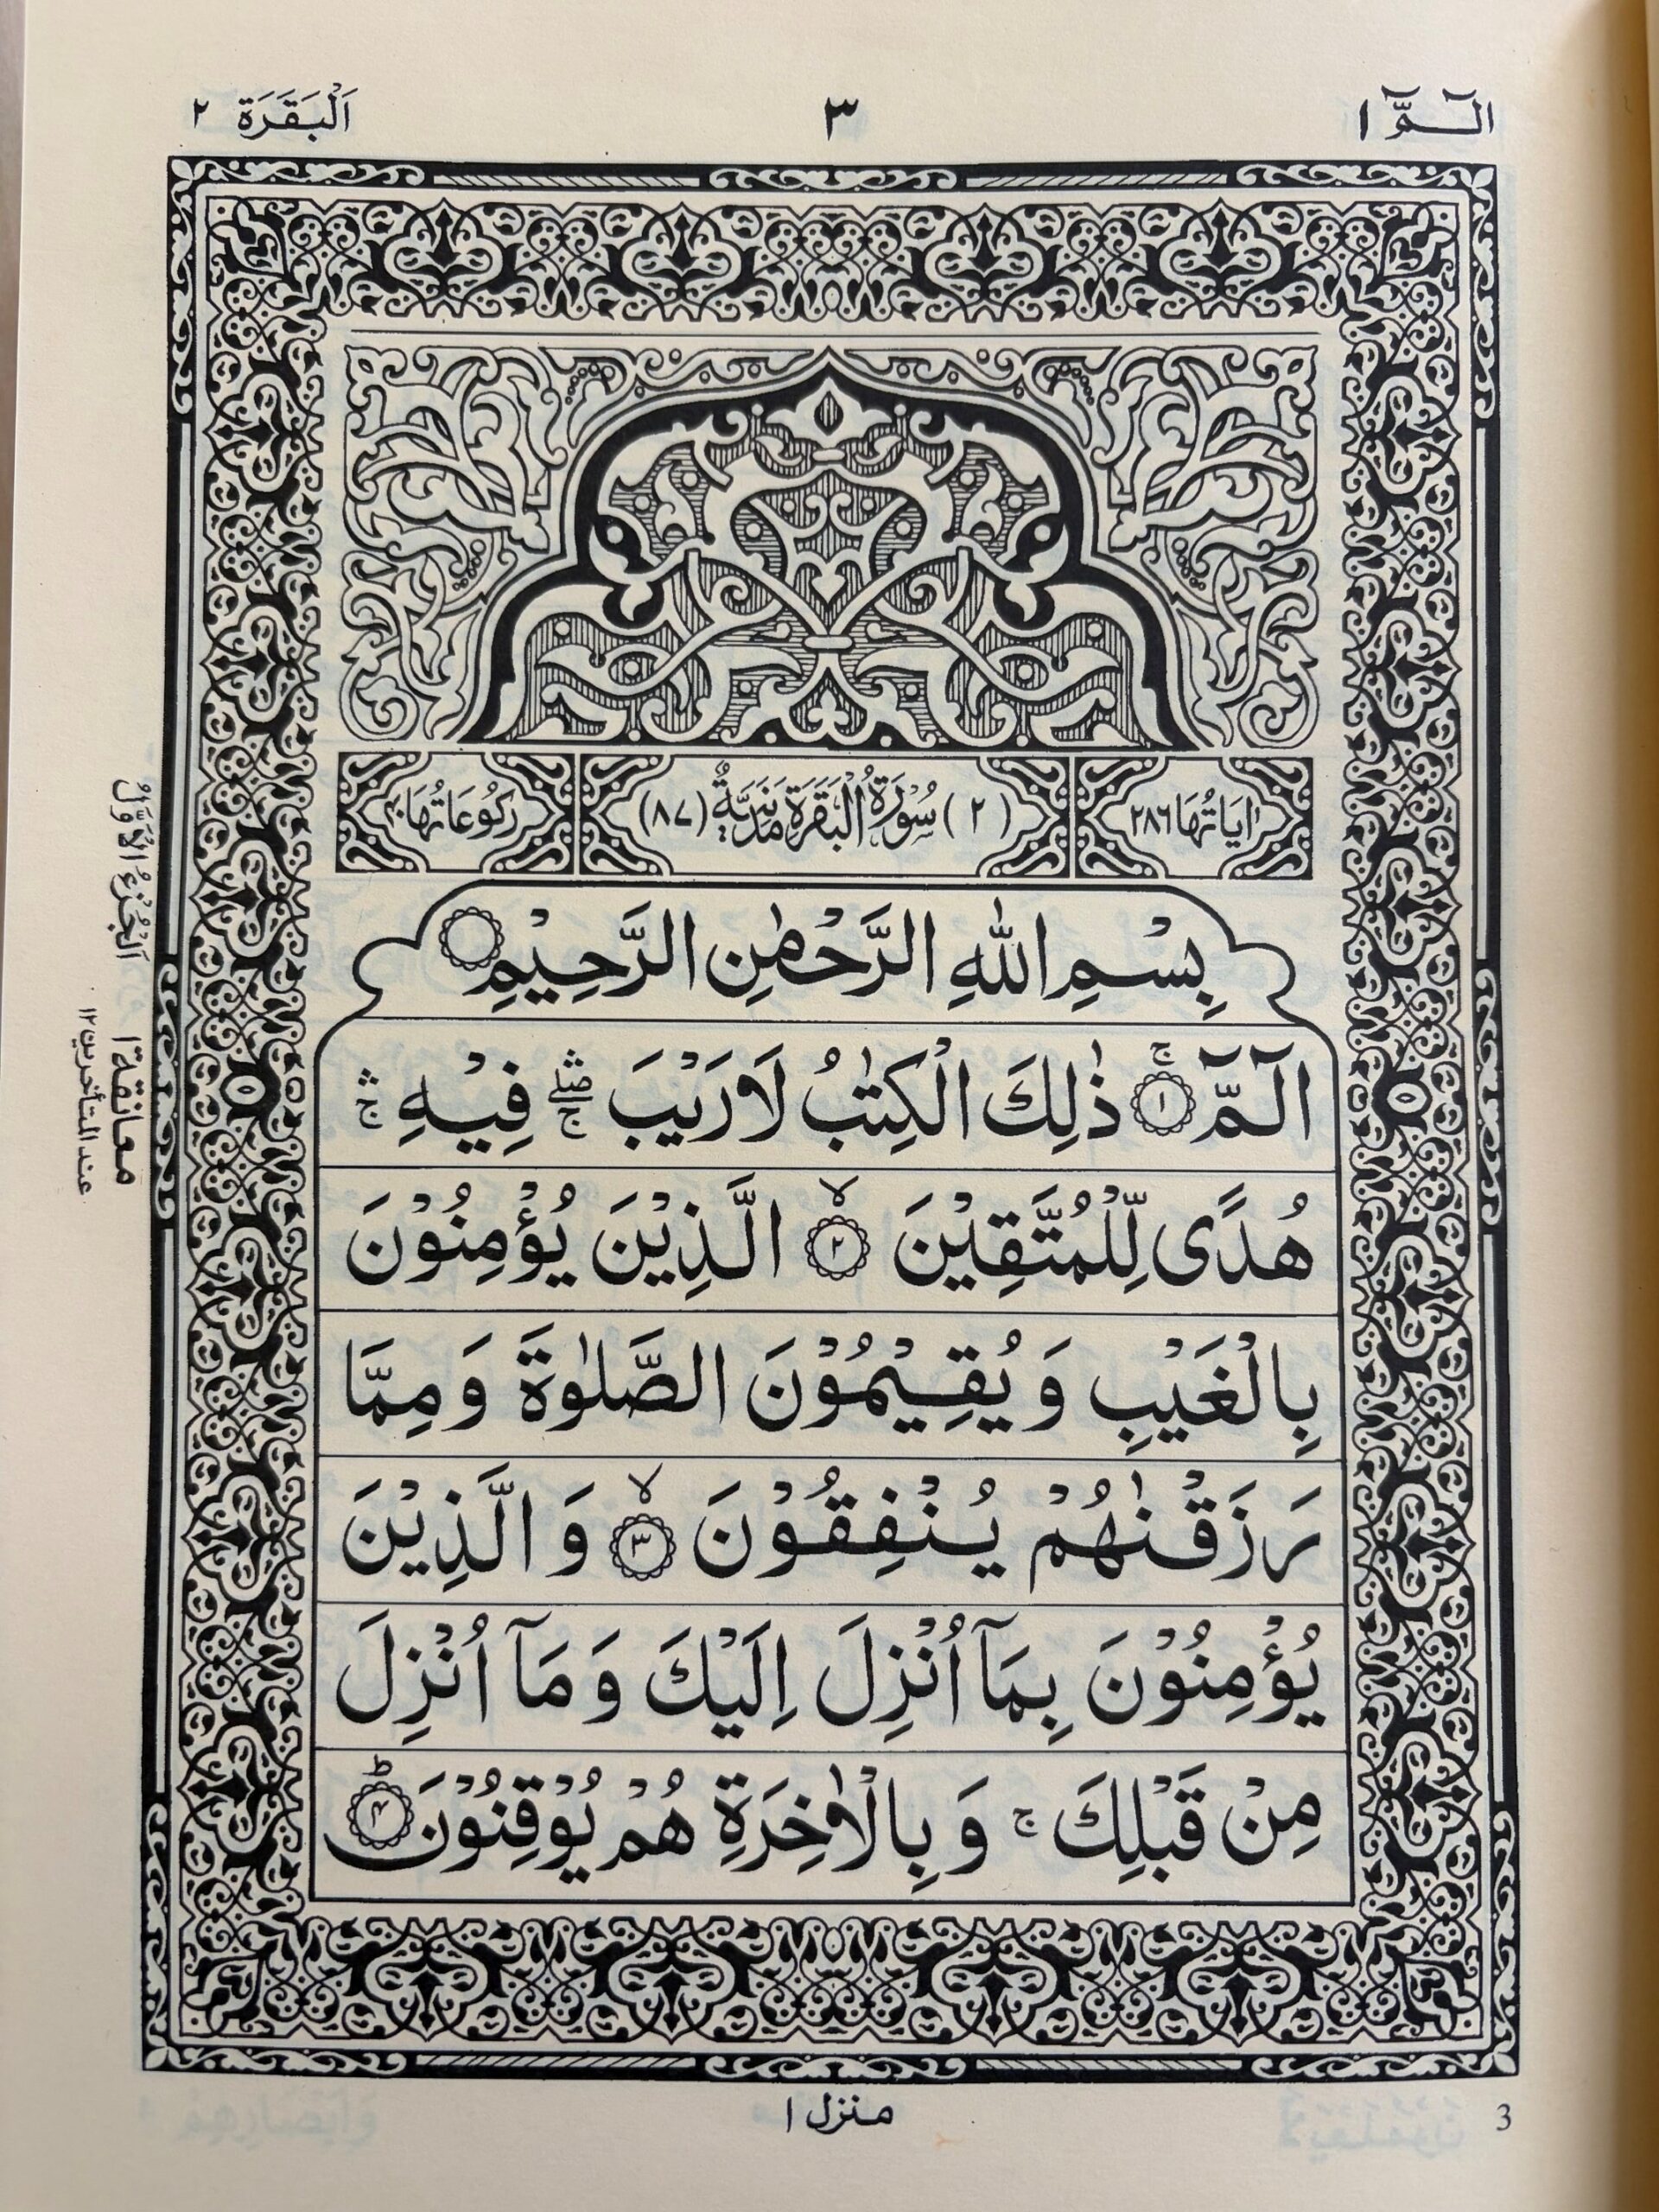 الٓـمّٓ ١
٣
اَلْبَقَرَة ٢
اٰيَاتُهَا ٢٨٦
(٢) سُوْرَةُ الْبَقَرَةِ مَدَنِيَّةٌ (٨٧)
رُكُوْعَاتُهَا ٤٠
بِسْمِ اللّٰهِ الرَّحْمٰنِ الرَّحِيْمِ
الٓـمّٓ ۚ ١ ذٰلِكَ الْكِتٰبُ لَا رَيْبَ ۛۖۚ فِيْهِ ۛۚ
هُدًى لِّلْمُتَّقِيْنَ ۙ ٢ الَّذِيْنَ يُؤْمِنُوْنَ
بِالْغَيْبِ وَ يُقِيْمُوْنَ الصَّلٰوةَ وَ مِمَّا
رَزَقْنٰهُمْ يُنْفِقُوْنَ ۙ ٣ وَ الَّذِيْنَ
يُؤْمِنُوْنَ بِمَآ اُنْزِلَ اِلَيْكَ وَ مَآ اُنْزِلَ
مِنْ قَبْلِكَ ۚ وَ بِالْاٰخِرَةِ هُمْ يُوْقِنُوْنَ ؕ ٤
اَلْجُزْءُ الْاَوَّلُ
معانقة ١
عند المتأخرين ١٢
منزل ١
3